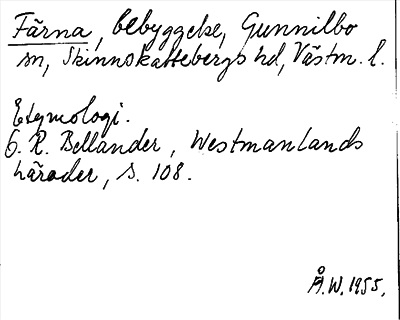 Färna, bebyggelse, Gunnilbo
sn, Skinnskattebergs hd, Västm. l.
Etymologi.
O. R. Bellander, Westmanlands
härader, s. 108.
Å.W. 1955.